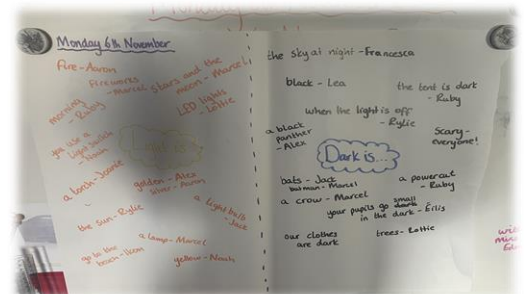 Monday 6th November
Fire - Aaron
Fireworks
- Marcel
stars and the
moon - Marcel
morning
- Ruby
LED lights
- Lottie
you use a
light switch
- Noah
Light is...
a torch - Jeanie
golden - Alex
silver - Aaron
a light bulb
- Jack
the sun - Rylie
a lamp - Marcel
go to the
beach -
yellow - Noah
the sky at night - Francesca
black - Lea
the tent is dark
- Ruby
when the light is off
- Rylie
a black
panther
- Alex
Scary -
everyone!
Dark is...
bats - Jack
batman - Marcel
a powercut
- Ruby
a crow - Marcel
your pupils go small
in the dark - Eilis
our clothes
are dark
trees - Lottie